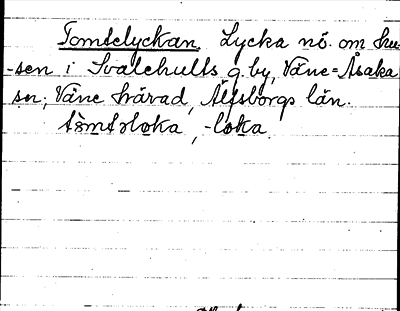 Tomtelyckan. Lycka nö. om hu-
-sen i Svalehults g. by, Väne-Åsaka
sn, Väne härad, Älfsborgs län.